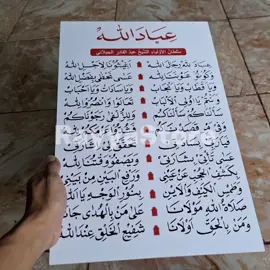 عِبَادَ اللّٰه
سلطان الأولياء للشيخ عبد القادر الجيلاني
عِبَادَ اللّٰهِ رِجَالَ اللّٰهِ أَغِيْثُوْنَا لِأَجْلِ اللّٰهِ
وَكُوْنُوْا عَوْنَنَا لِلّٰهِ عَسَى نَحْظَى بِفَضْلِ اللّٰهِ
وَيَا أَقْطَابُ وَيَا أَنْجَابُ وَيَا سَادَاتُ وَيَا أَحْبَابُ
تَعَالَوْا وَانْصُرُوْا لِلّٰهِ
سَأَلْنَاكُمْ سَأَلْنَاكُمْ وَلِلزُّلْفَى رَجَوْنَاكُمْ
عَسَى تَأْتِي بِشَارَتِي وَيَصْفُوْ وَقْتُنَا لِلّٰهِ
بِكَشْفِ الْحُجْبِ عَنْ عَيْنِي وَرَفْعِ الْبَيْنِ مِنْ بَيْنِي
وَطَمْسِ الْكَيْفِ وَالْأَيْنِ بِنُوْرِ الْوَجْهِ يَا اَللّٰهُ
صَلَاةُ اللّٰهِ مَوْلَانَا عَلَى مَنْ بِالْهُدَى جَانَا
وَمَنْ بِالْحَقِّ أَوْلَانَا شَفِيْعِ الْخَلْقِ عِنْدَ اللّٰهِ